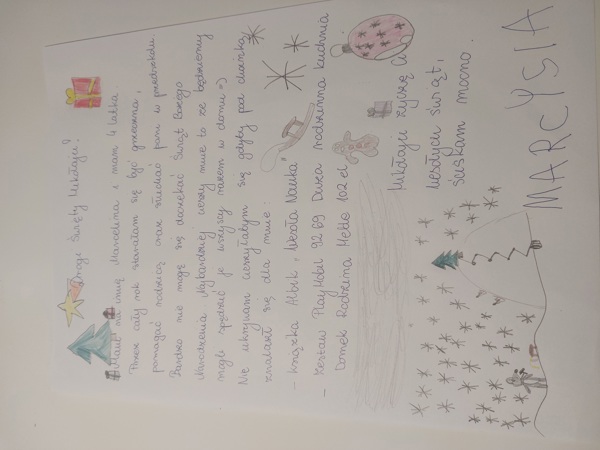 Drogi Święty Mikołaju!
Mam na imię Marcelina i mam 4 latka.
Przez cały rok starałam się być grzeczna,
pomagać rodzicą oraz słuchać pani w przedszkolu.
Bardzo nie mogę się doczekać Świąt Bożego
Narodzenia Najbardziej cieszy mnie to że będziemy
mogli spędzić je wszyscy razem w domu =)
Nie ukrywam cieszyłabym się gdyby pod choinką
znalazł się dla mnie:
- książka Albik „Wesoła Nauka"
- zestaw PlayMobil 9269 Duża rodzinna kuchnia
Domek Rodzina Meble 102 el
Mikołaju życzę Ci
wesołych świąt,
ściskam mocno.
MARCYSIA